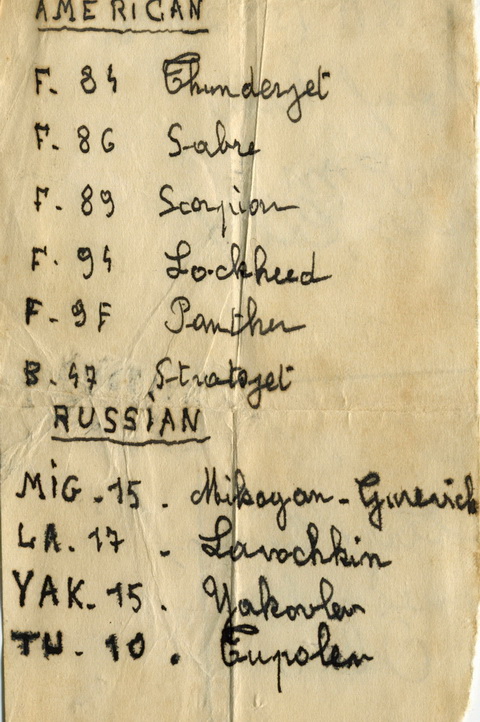 AMERICAN
F. 84 Thunderjet
F. 86 Sabre
F. 89 Scorpion
F. 94 Lockheed
F. 9F Panther
B. 47 Stratojet
RUSSIAN
MiG. 15. Mikoyan - Gurevich
LA. 17. Lavochkin
YAK. 15. Yakovlev
TU. 10. Tupolev